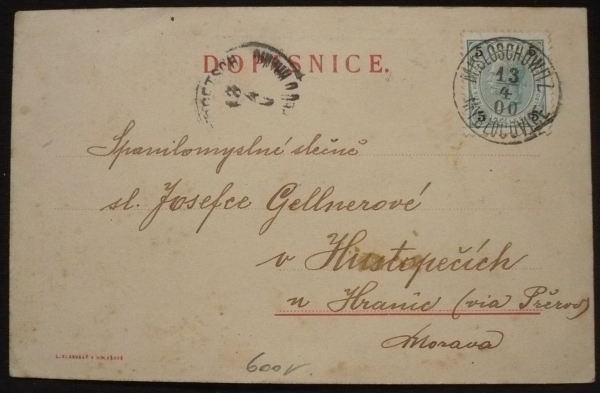 DOPISNICE.
5 5
MISLOSCHOWITZ
13
4
00
MYSLOCOVICE
13
4
Spanilomyslné slečně
sl. Josefce Gellnerové
v Hustopečích
u Hranic (via Přerov)
Morava
600,-